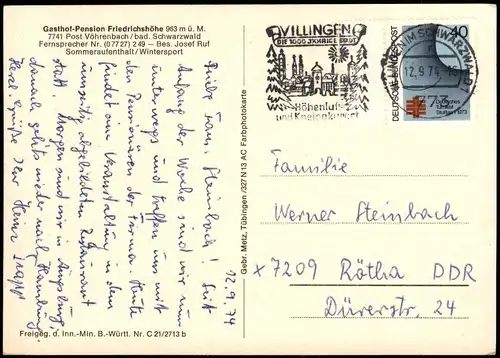 Gasthof-Pension Friedrichshöhe 963 m ü. M.
7741 Post Vöhrenbach / bad. Schwarzwald
Fernsprecher Nr. (07727) 249 – Bes. Josef Ruf
Sommeraufenthalt / Wintersport
12.9.74
Liebe Fam. Steinbach! Seit
Anfang der Woche sind wir nun
unterwegs und treffen uns mit
den Pensionären der Firma. Heute
findet eine Veranstaltung in dem
umseitig abgebildeten Restaurant
statt. Morgen sind wir in Augsburg,
danach geht's wieder nach Hamburg.
Herzl. Grüße Ihr Heinz
Freigeg. d. Inn.-Min. B.-Württ. Nr. C 21/2713 b
Gebr. Metz, Tübingen /327 N 13 AC Farbphotokarte
VILLINGEN
DIE 1000 JÄHRIGE STADT
Höhenluft-
und Kneippkurort
VILLINGEN IM SCHWARZWALD
12.9.74
DEUTSCHE BUNDESPOST
40
73
Deutsches
Turnfest
Stuttgart 1973
Familie
Werner Steinbach
x 7209 Rötha DDR
Dürerstr. 24